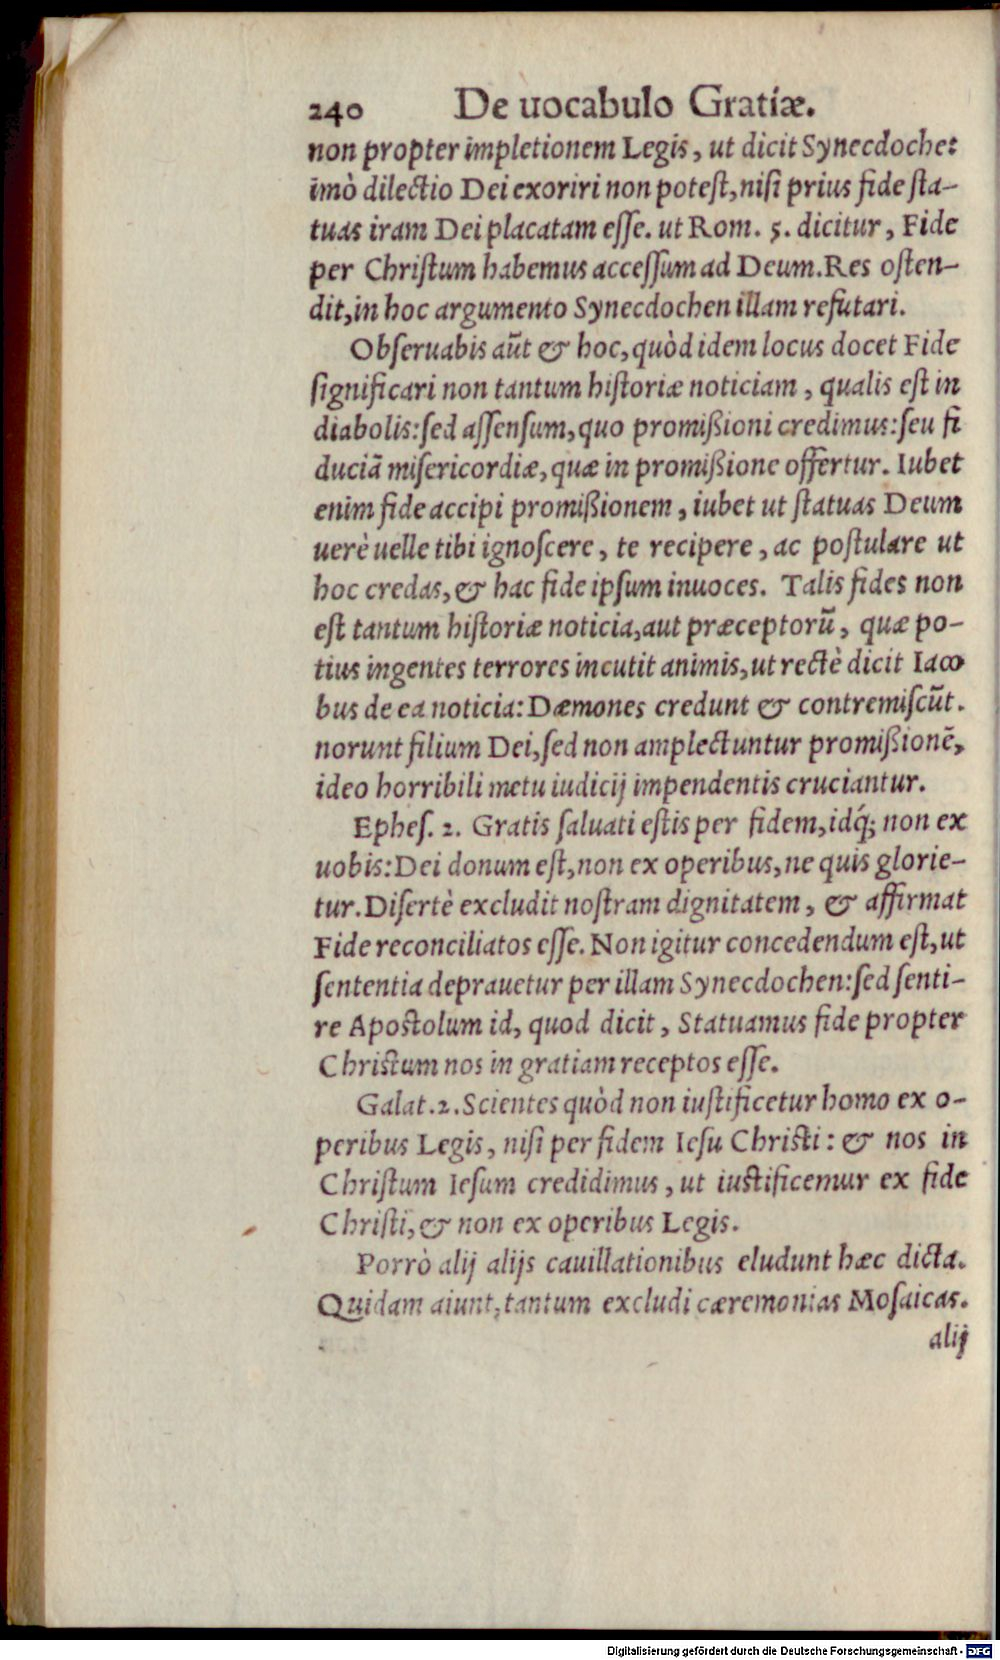 240 De uocabulo Gratiæ.
non propter impletionem Legis, ut dicit Synecdoche:
imò dilectio Dei exoriri non poteſt, niſi prius fide ſta-
tuas iram Dei placatam eſſe. ut Rom. 5. dicitur, Fide
per Chriſtum habemus acceſſum ad Deum. Res oſten-
dit, in hoc argumento Synecdochen illam refutari.
Obſeruabis aūt & hoc, quòd idem locus docet Fide
ſignificari non tantum hiſtoriæ noticiam, qualis eſt in
diabolis: ſed aſſenſum, quo promißioni credimus: ſeu fi
duciā miſericordiæ, quæ in promißione offertur. Iubet
enim fide accipi promißionem, iubet ut ſtatuas Deum
uerè uelle tibi ignoſcere, te recipere, ac poſtulare ut
hoc credas, & hac fide ipſum inuoces. Talis fides non
eſt tantum hiſtoriæ noticia, aut præceptorū, quæ po-
tius ingentes terrores incutit animis, ut rectè dicit Iaco
bus de ea noticia: Dæmones credunt & contremiſcūt.
norunt filium Dei, ſed non amplectuntur promißionē,
ideo horribili metu iudicij impendentis cruciantur.
Epheſ. 2. Gratis ſaluati eſtis per fidem, idq́; non ex
uobis: Dei donum eſt, non ex operibus, ne quis glorie-
tur. Diſertè excludit noſtram dignitatem, & affirmat
Fide reconciliatos eſſe. Non igitur concedendum eſt, ut
ſententia deprauetur per illam Synecdochen: ſed ſenti-
re Apostolum id, quod dicit, Statuamus fide propter
Christum nos in gratiam receptos eſſe.
Galat. 2. Scientes quòd non iuſtificetur homo ex o-
peribus Legis, niſi per fidem Ieſu Chriſti: & nos in
Chriſtum Ieſum credidimus, ut iustificemur ex fide
Chriſti, & non ex operibus Legis.
Porrò alij alijs cauillationibus eludunt hæc dicta.
Quidam aiunt, tantum excludi cæremonias Moſaicas.
alij
Digitalisierung gefördert durch die Deutsche Forschungsgemeinschaft - DFG